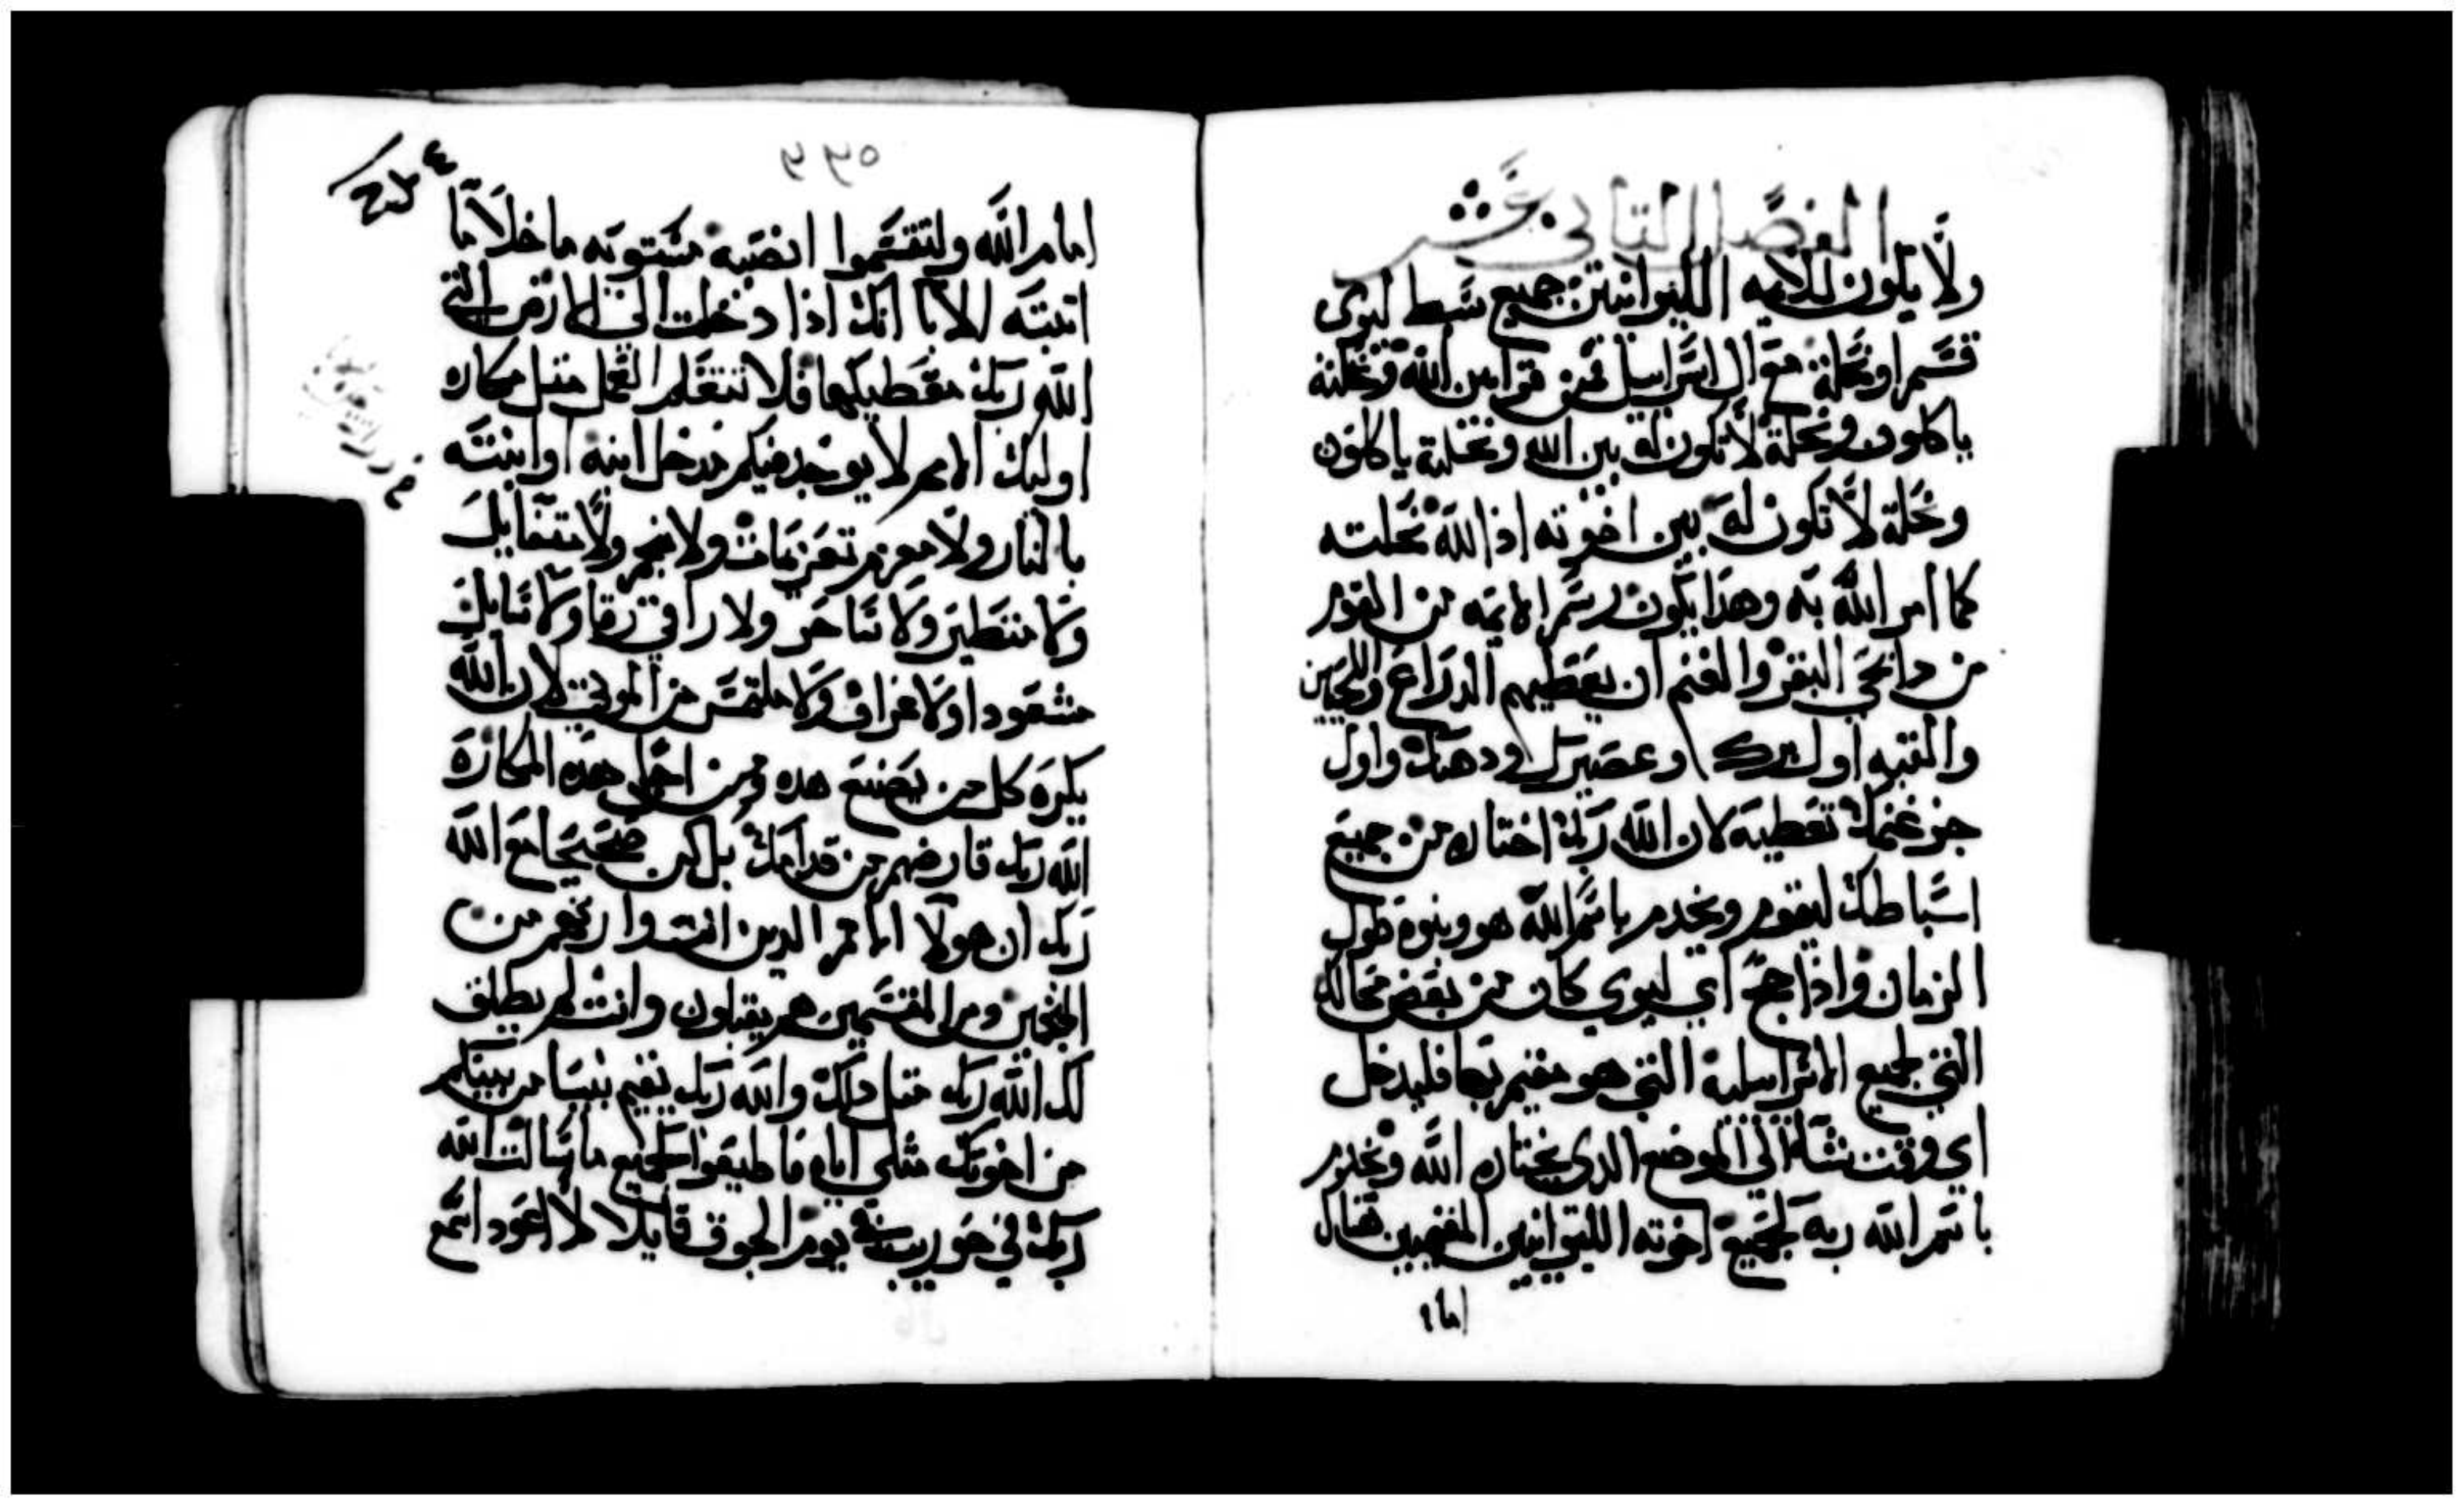 الفصل التاني عشر
ولا يكون للايمه الليوانيين جميع سبط ليوي
قسم او نحلة مع ال اسراييل فمن قرابين الله ونحلته
ياكلون ونحلة لا تكون له بين الله ونحلته ياكلون
ونحلة لا تكون له بين اخوته اذ الله نحلته
كما امر الله به وهذا يكون رسم الايمه من القوم
من دابحي البقر والغنم ان يعطيهم الدراع واللحيين
والقبه اول برك وعصيرك ودهنك واول
جز غنمك تعطيه لان الله ربك اختاره من جميع
اسباطك ليقوم ويخدم باسم الله هو وبنوه طول
الزمان واذا جا اي ليوي كان من بعض محالك
التي لجميع الاسراييلية التي هو مقيم بها فليدخل
اي وقت شا الى الموضع الدي يختاره الله ويخدم
باسم الله ربه لجميع اخوته الليوانيين المقيمين هناك
امام
٢٢٥
امام الله وليقتسموا انصبه مستويه ما خلا ما
اتبته الابا انك اذا دخلت الى الارض التي
الله ربك معطيكها فلا تتعلم العمل مثل مكاره
اوليك الامم لا يوجد فيكم مدخل ابنه او ابنته
بالنار ولا معزم تعزيمات ولا منجم ولا متفايل
ولا متطير ولا ساحر ولا راقي رقا ولا سايل
مشعودا ولا عراف ولا ملتمس من الموتى لان الله
يكره كل من يصنع هده ومن اجل هده المكاره
الله ربك قارضهم من قدامك بل كن صحيحا مع الله
ربك ان هولا الامم الدين انت وارثهم من
المنجمين ومن المقسمين هم يقبلون وانت لم يطلق
لك الله ربك مثل دلك والله ربك يقيم نبيا من بينكم
من اخوتك مثلي اياه فاطيعوا كجميع ما سالت الله
ربك في حوريب في يوم الجوق قايلا لا اعود اسمع